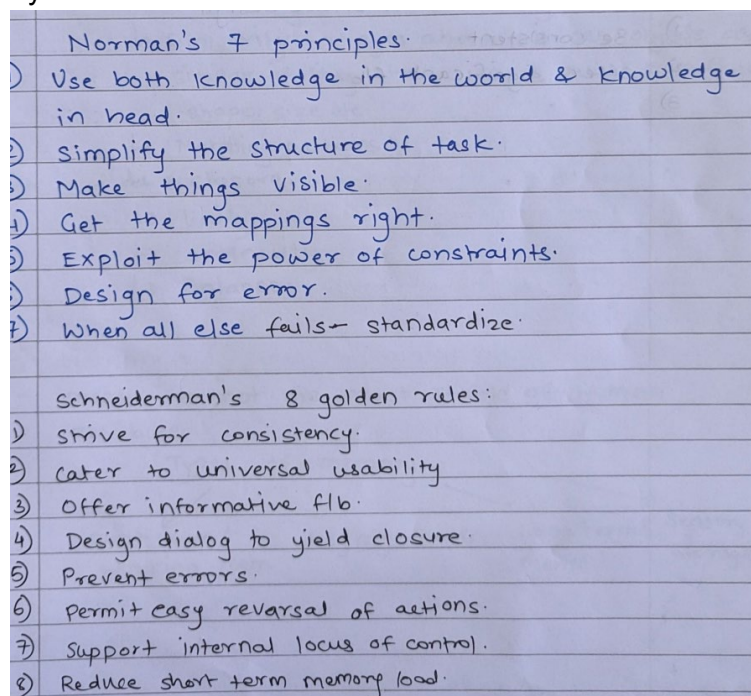 Norman's 7 principles.
) Use both knowledge in the world & knowledge
in head.
2) Simplify the structure of task.
3) Make things visible.
4) Get the mappings right.
5) Exploit the power of constraints.
6) Design for error.
7) When all else fails - standardize.
Schneiderman's 8 golden rules:
1) Strive for consistency.
2) Cater to universal usability
3) Offer informative f/b.
4) Design dialog to yield closure.
5) Prevent errors.
6) Permit easy revarsal of actions.
7) Support internal locus of control.
8) Reduce short term memory load.